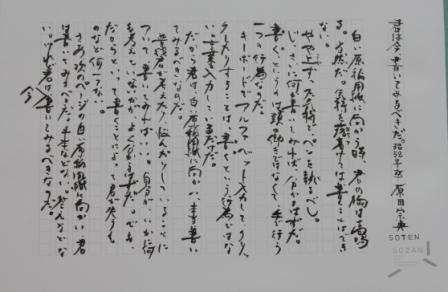 君は今、書いてみるべきだ。 原田宗典
白い原稿用紙に向かう時、君の胸は高鳴
る。当然だ。気持を落着けては書くことはでき
ない。
やや上ずった気持で、ペンを執るべし。
じっさいに何か書いてみれば分るはずだ。
書くというのは頭の働きではなくて、手で行う
一つの行為なのだ。
キーボードでアルファベット入力してクリッ
クしたりすることは、書くという行為ではな
い。言葉入力していると言うだけだ。
だから君は、白い原稿用紙に向かい、書い
てみるべきなのだ。
普段君が考えたり悩んだりしていることに
ついて書いてみればいい。自分が
を考えているかがよく分るはずだ。
だからといって、書くことによって君が失うも
のなど何一つない。
さあ次のページの白い原稿用紙に向かい、君
は書いてみるべきだ。手本などない。
い。けれど君は今書いてみるべきなのだ。
SOTEN
SOZAN